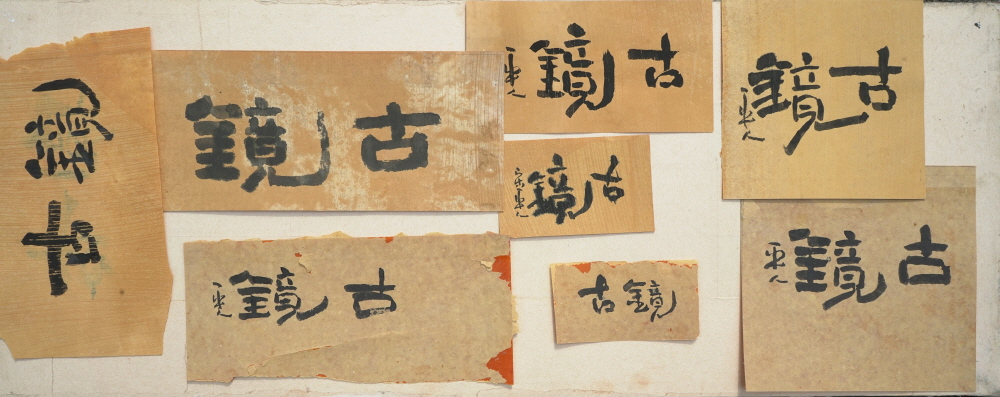 古鏡
古鏡
古鏡
古鏡
古鏡
古鏡
古鏡
古鏡